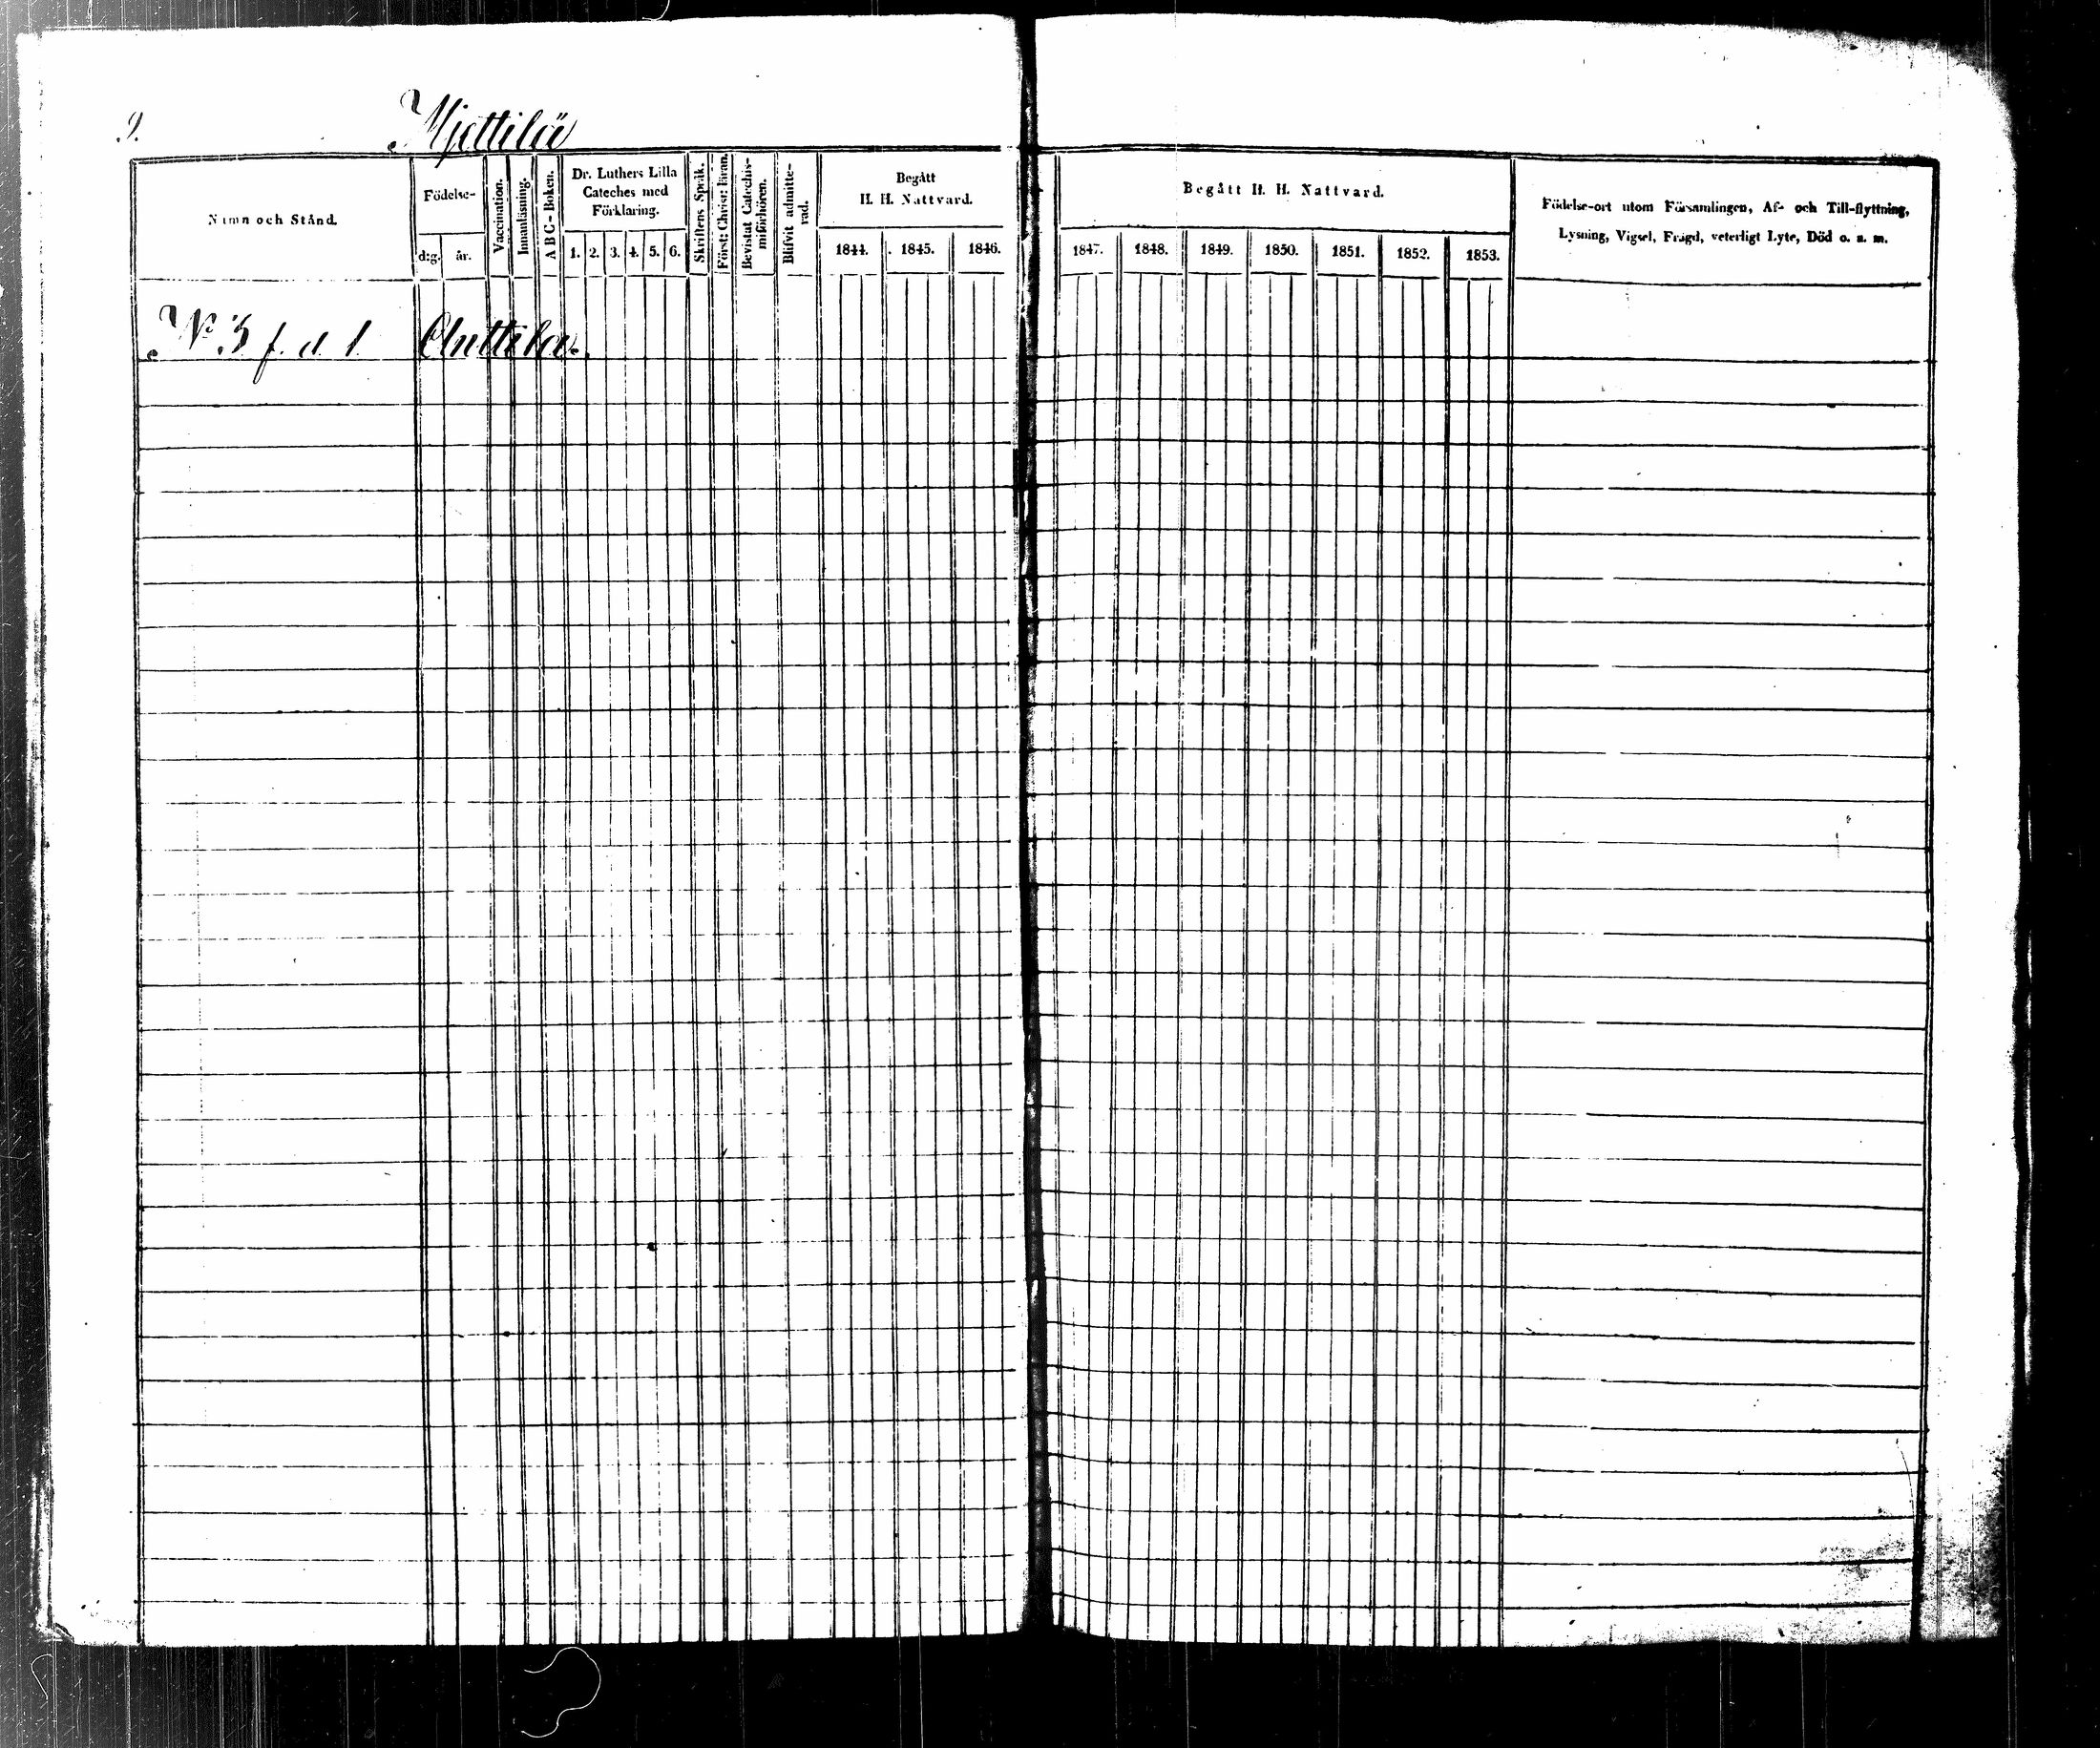 9.
Mjettilä
Namn och Stånd.
Födelse-
d:g.
år.
Vaccination.
Innanläsning.
A B C - Boken.
Dr. Luthers Lilla
Cateches med
Förklaring.
1. 2. 3. 4. 5. 6.
Skriftens Språk.
Först: Christ: Eran.
Bevistat Catechis-
miförhören.
Blifvit admitte-
rad.
Begått
H. H. Nattvard.
1844. 1845. 1846.
Begått H. H. Nattvard.
1847. 1848. 1849. 1850. 1851. 1852. 1853.
Födelse-ort utom Församlingen, Af- och Till-flyttning,
Lysning, Vigsel, Frägd, veterligt Lyte, Död o. s. m.
No 3 f. d. 1 Anttila.